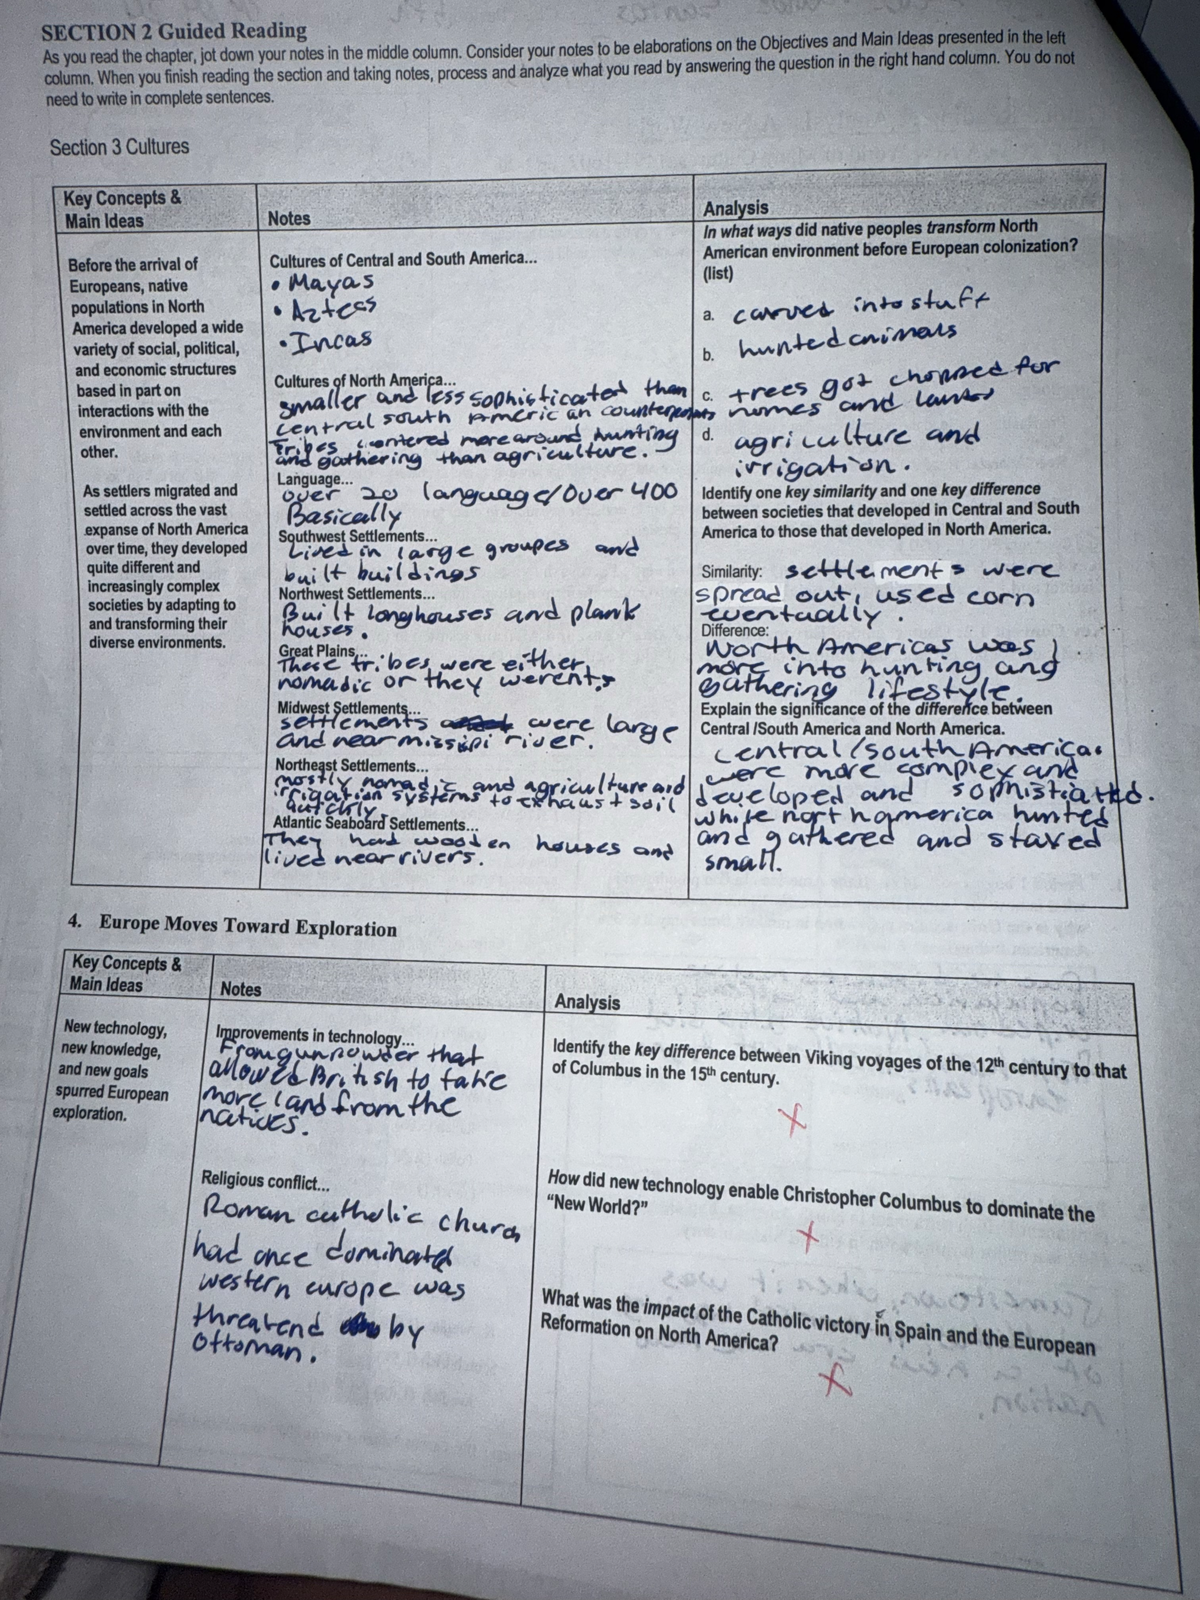 SECTION 2 Guided Reading
As you read the chapter, jot down your notes in the middle column. Consider your notes to be elaborations on the Objectives and Main Ideas presented in the left
column. When you finish reading the section and taking notes, process and analyze what you read by answering the question in the right hand column. You do not
need to write in complete sentences.
Section 3 Cultures
Key Concepts &
Main Ideas
Notes
Analysis
Before the arrival of
Europeans, native
populations in North
America developed a wide
variety of social, political,
and economic structures
based in part on
interactions with the
environment and each
other.
As settlers migrated and
settled across the vast
expanse of North America
over time, they developed
quite different and
increasingly complex
societies by adapting to
and transforming their
diverse environments.
Cultures of Central and South America...
• Mayas
• Aztecs
• Incas
Cultures of North America...
smaller and less sophisticated than
central south American counterparts
Tribes centered more around hunting
and gathering than agriculture.
Language...
over 20 language/over 400
Basically
Southwest Settlements...
Lived in large groupes and
built buildings
Northwest Settlements...
Built longhouses and plank
houses.
Great Plains...
These tribes were either
nomadic or they werent.
Midwest Settlements...
settlements were large
and near missipi river.
Northeast Settlements...
mostly nomadic and agriculture and
irrigation systems to exhaust soil
Atlantic Seaboard Settlements...
They had wooden houses and
lived near rivers.
In what ways did native peoples transform North
American environment before European colonization?
(list)
a. carved into stuff
b. hunted animals
c. trees got chopped for
homes and
d. agriculture and
irrigation.
Identify one key similarity and one key difference
between societies that developed in Central and South
America to those that developed in North America.
Similarity: settlements were
spread out, used corn
eventually.
Difference:
North Americas was
more into hunting and
gathering lifestyle.
Explain the significance of the difference between
Central /South America and North America.
central/south America
were more complex and
developed and sophisticated.
while north america hunted
and gathered and stayed
small.
4. Europe Moves Toward Exploration
Key Concepts &
Main Ideas
Notes
Analysis
New technology,
new knowledge,
and new goals
spurred European
exploration.
Improvements in technology...
From gunpowder that
allowed British to take
more land from the
natives.
Religious conflict...
Roman catholic church
had once dominated
western europe was
threatend by
Ottoman.
Identify the key difference between Viking voyages of the 12th century to that
of Columbus in the 15th century.
X
How did new technology enable Christopher Columbus to dominate the
“New World?”
X
What was the impact of the Catholic victory in Spain and the European
Reformation on North America?
X